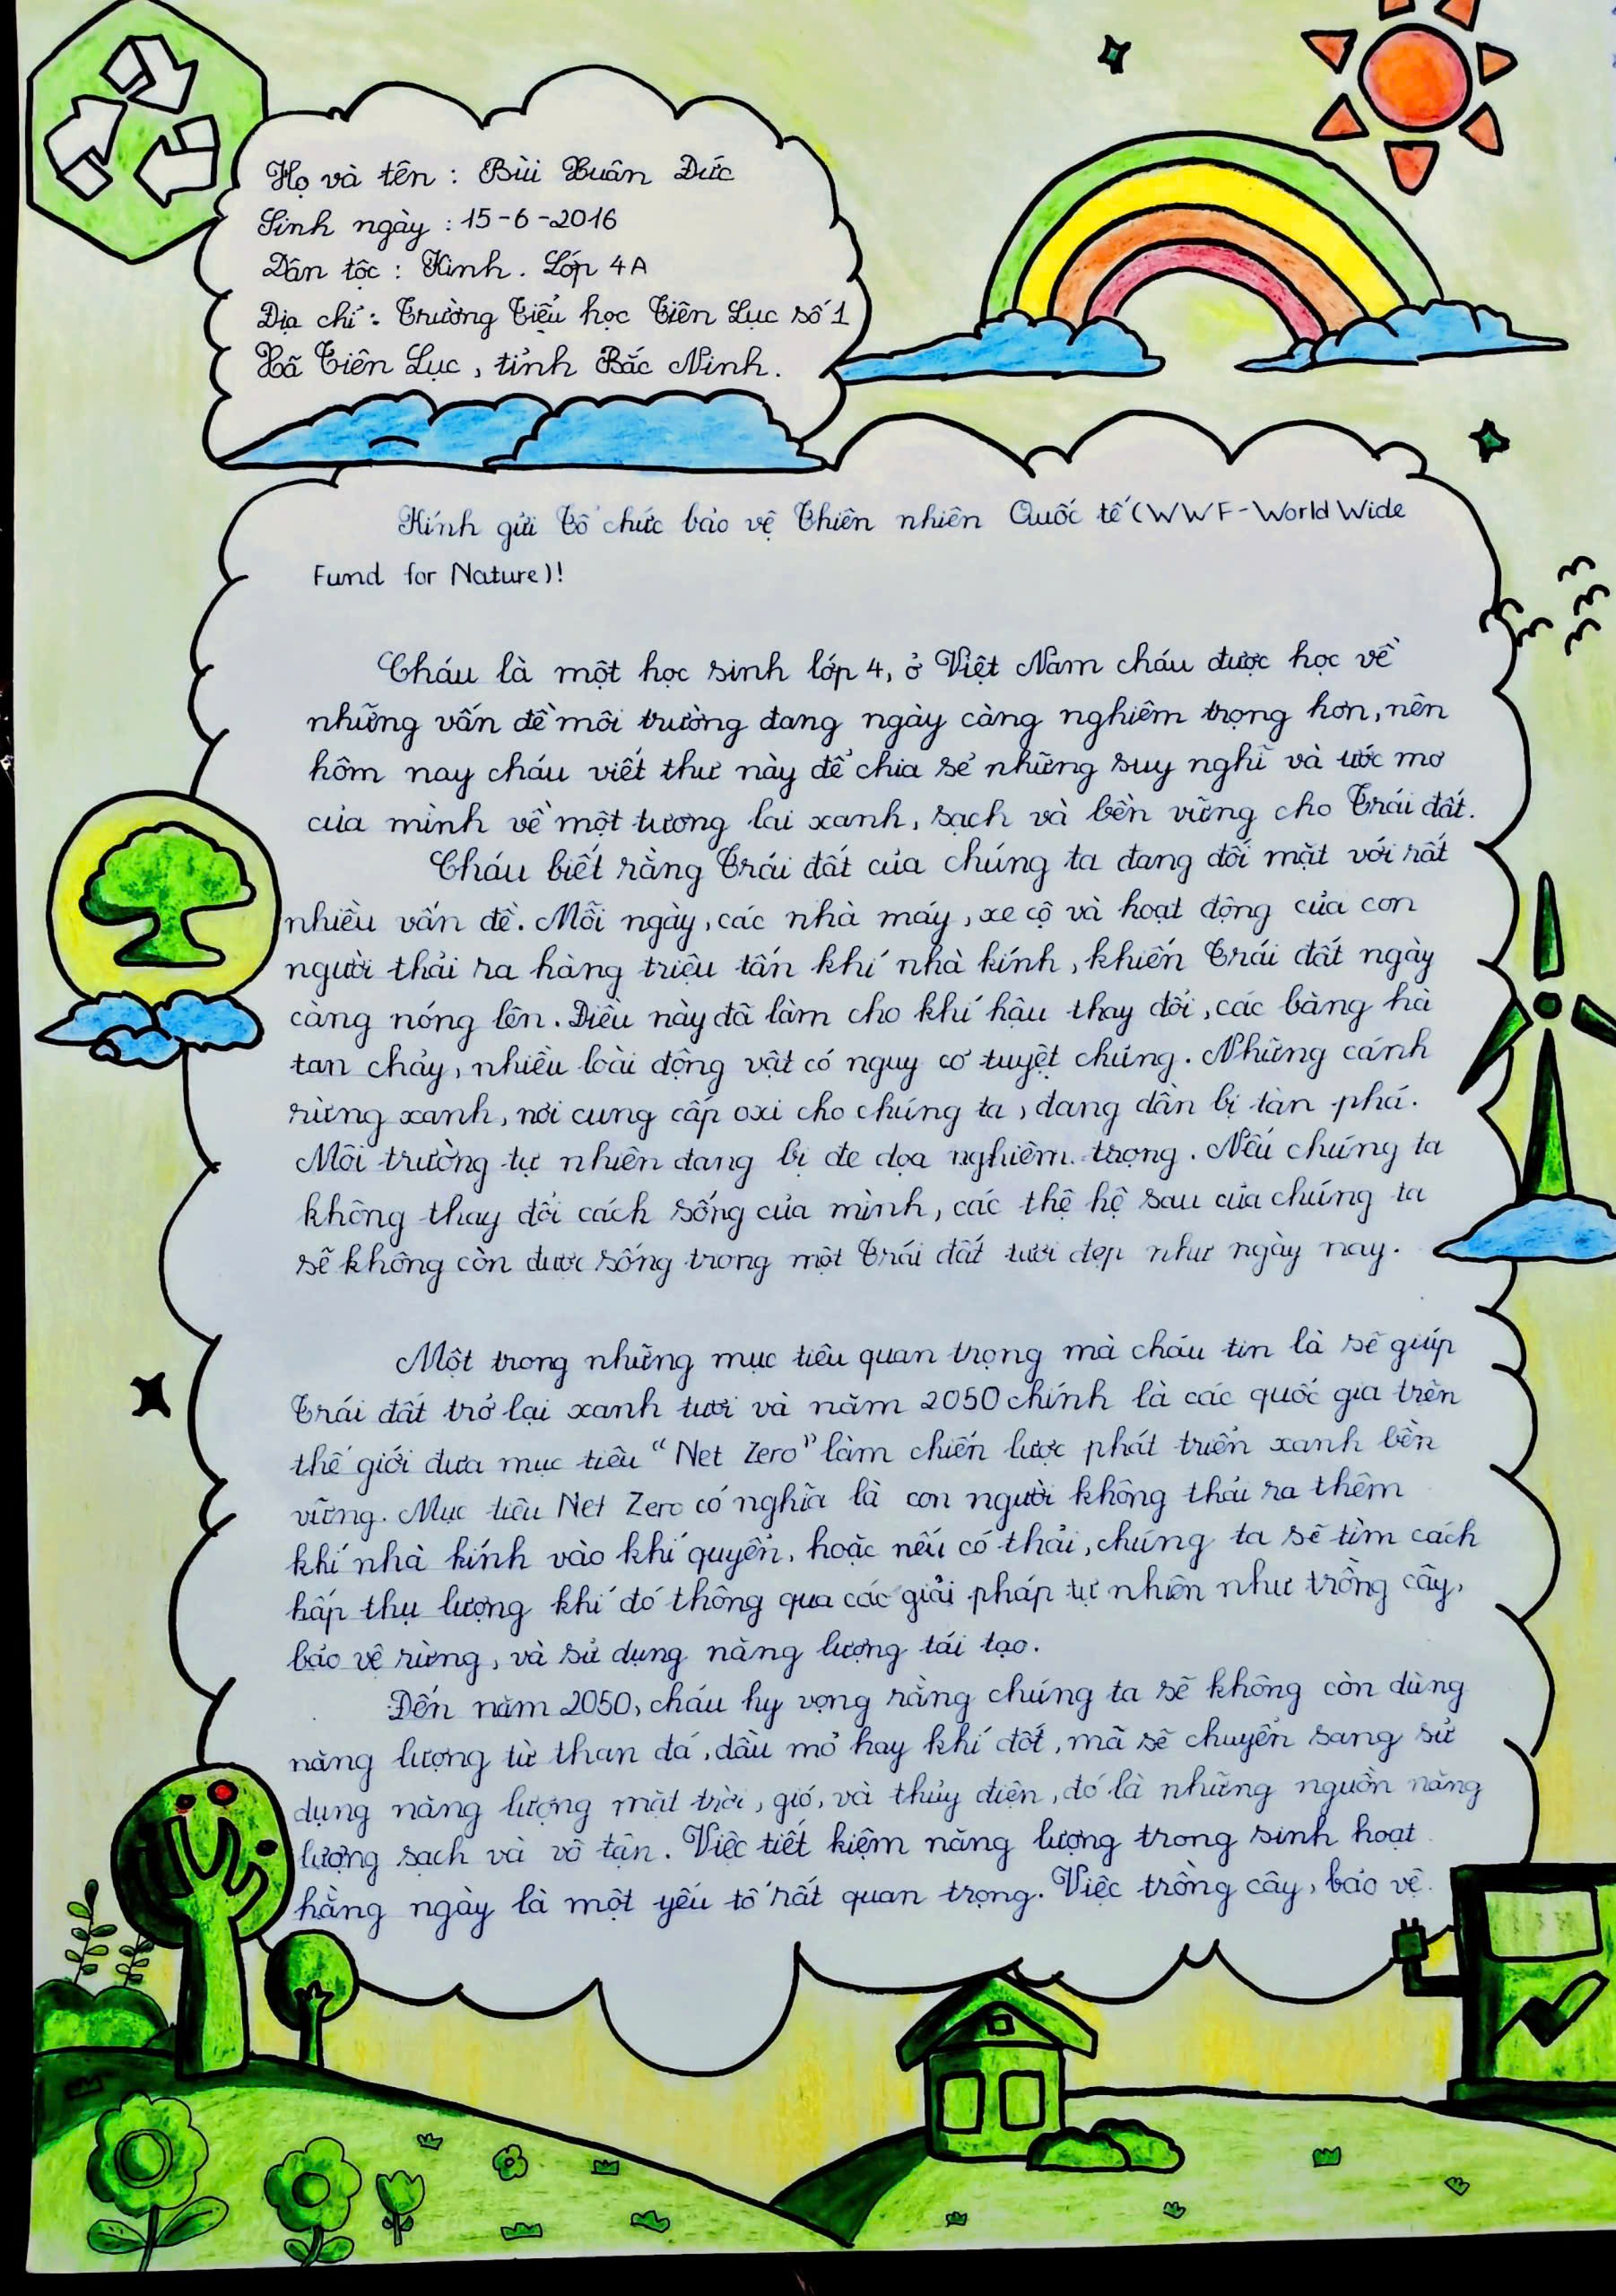 Họ và tên : Bùi Xuân Đức
Sinh ngày : 15-6-2016
Dân tộc : Kinh. Lớp 4A
Địa chỉ : Trường Tiểu học Tiên Lục số 1
Xã Tiên Lục, tỉnh Bắc Ninh.
Kính gửi Tổ chức bảo vệ Thiên nhiên Quốc tế (WWF-World Wide
Fund for Nature)!
Cháu là một học sinh lớp 4, ở Việt Nam cháu được học về
những vấn đề môi trường đang ngày càng nghiêm trọng hơn, nên
hôm nay cháu viết thư này để chia sẻ những suy nghĩ và ước mơ
của mình về một tương lai xanh, sạch và bền vững cho Trái đất.
Cháu biết rằng Trái đất của chúng ta đang đối mặt với rất
nhiều vấn đề. Mỗi ngày, các nhà máy, xe cộ và hoạt động của con
người thải ra hàng triệu tấn khí nhà kính, khiến Trái đất ngày
càng nóng lên. Điều này đã làm cho khí hậu thay đổi, các băng hà
tan chảy, nhiều loài động vật có nguy cơ tuyệt chủng. Những cánh
rừng xanh, nơi cung cấp oxi cho chúng ta, đang dần bị tàn phá.
Môi trường tự nhiên đang bị đe dọa nghiêm trọng. Nếu chúng ta
không thay đổi cách sống của mình, các thệ hệ sau của chúng ta
sẽ không còn được sống trong một Trái đất tươi đẹp như ngày nay.
Một trong những mục tiêu quan trọng mà cháu tin là sẽ giúp
Trái đất trở lại xanh tươi và năm 2050 chính là các quốc gia trên
thế giới đưa mục tiêu "Net Zero" làm chiến lược phát triển xanh bền
vững. Mục tiêu Net Zero có nghĩa là con người không thải ra thêm
khí nhà kính vào khí quyển, hoặc nếu có thải, chúng ta sẽ tìm cách
hấp thụ lượng khí đó thông qua các giải pháp tự nhiên như trồng cây,
bảo vệ rừng, và sử dụng năng lượng tái tạo.
Đến năm 2050, cháu hy vọng rằng chúng ta sẽ không còn dùng
năng lượng từ than đá, dầu mỏ hay khí đốt, mà sẽ chuyển sang sử
dụng năng lượng mặt trời, gió, và thủy điện, đó là những nguồn năng
lượng sạch và vô tận. Việc tiết kiệm năng lượng trong sinh hoạt
hằng ngày là một yếu tố rất quan trọng. Việc trồng cây, bảo vệ